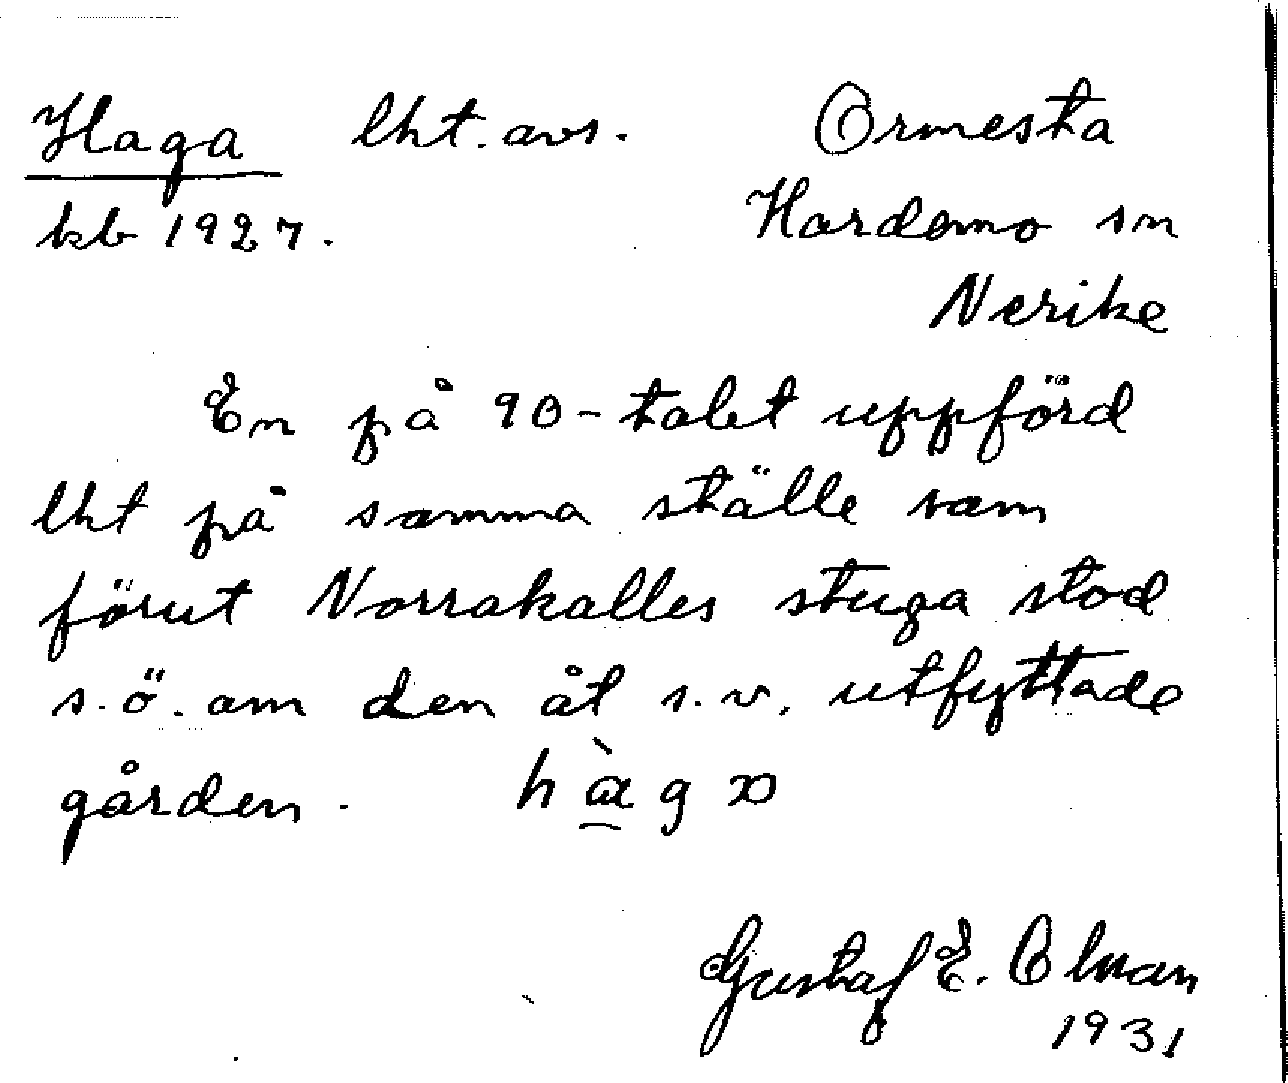 Haga lht. avs. Ormesta
kb 1927. Hardemo sn
Nerike
En på 90-talet uppförd
lht på samma ställe som
förut Norrakalles stuga stod
s.ö. om den åt s.v. utfyttade
gården.
Gustaf E.
1931